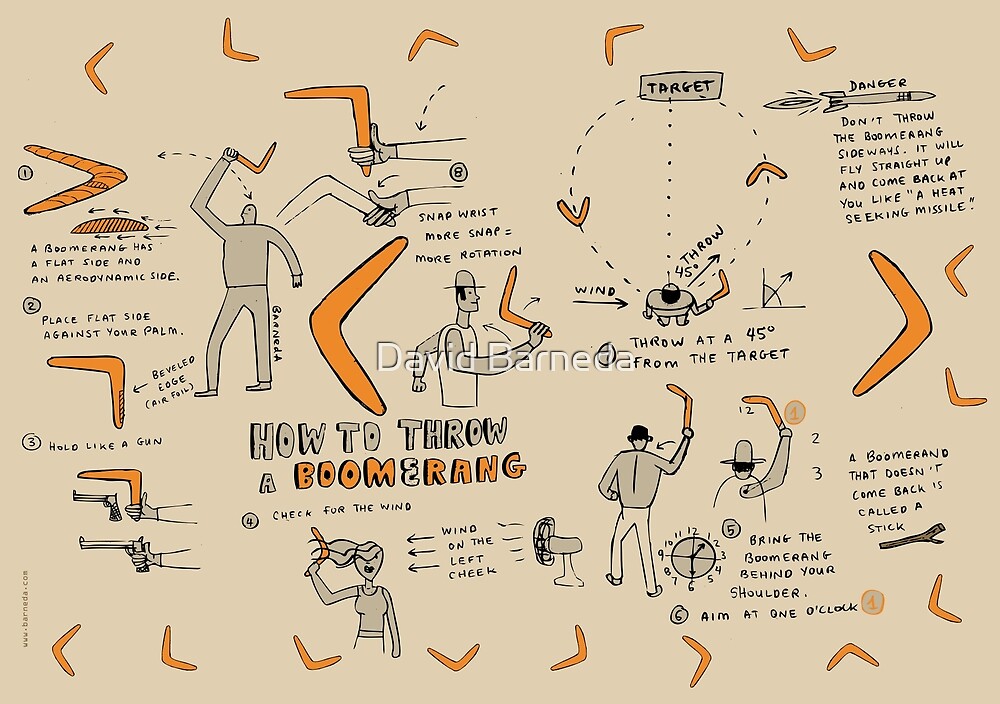 TARGET
DANGER
DON'T THROW
THE BOOMERANG
SIDEWAYS. IT WILL
FLY STRAIGHT UP
AND COME BACK AT
YOU LIKE "A HEAT
SEEKING MISSILE".
1
A BOOMERANG HAS
A FLAT SIDE AND
AN AERODYNAMIC SIDE.
2
PLACE FLAT SIDE
AGAINST YOUR PALM.
BEVELED
EDGE
(AIR FOIL)
3 HOLD LIKE A GUN
BARNEDA
8
SNAP WRIST
MORE SNAP =
MORE ROTATION
THROW
45°
WIND
THROW AT A 45°
FROM THE TARGET
David Barneda
HOW TO THROW
A BOOMERANG
4 CHECK FOR THE WIND
WIND
ON THE
LEFT
CHEEK
12 1
2
3
11 12 1 2 3 4 5 6 7 8 9 10
5 BRING THE
BOOMERANG
BEHIND YOUR
SHOULDER.
6 AIM AT ONE O'CLOCK 1
A BOOMERANG
THAT DOESN'T
COME BACK IS
CALLED A
STICK
www.barneda.com